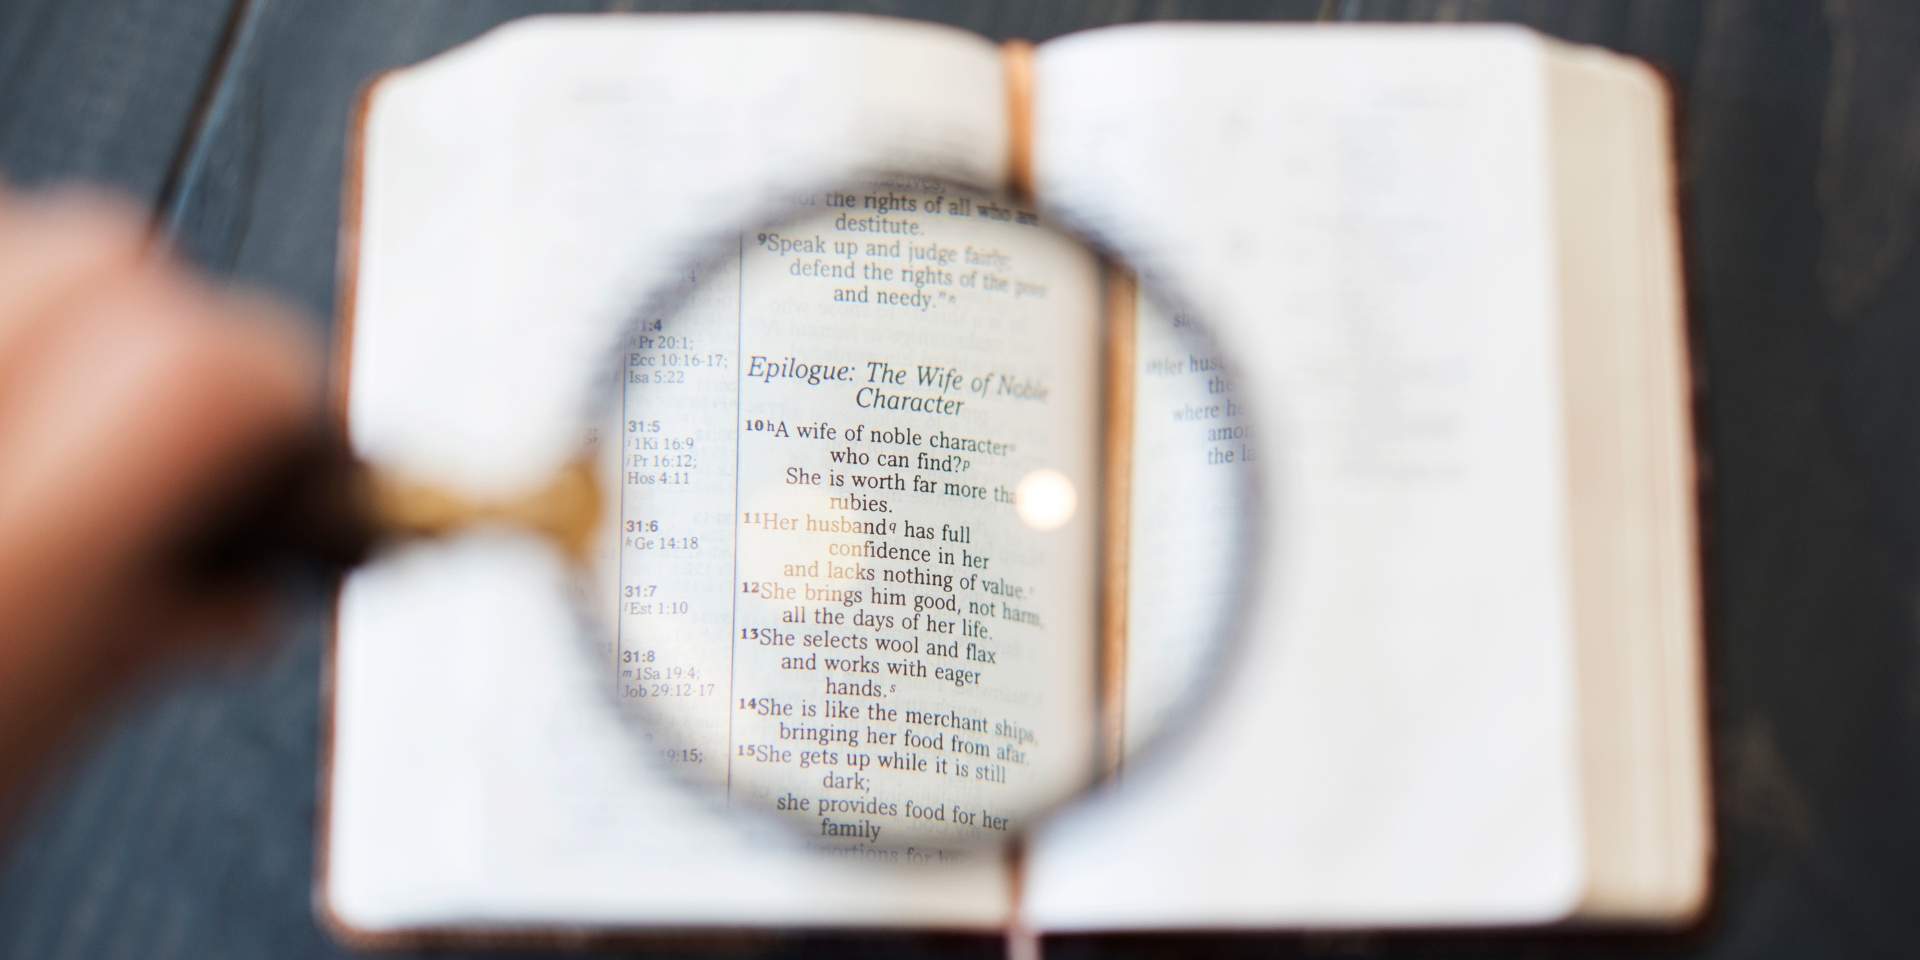 the rights of all who are
destitute.
9Speak up and judge fairly;
defend the rights of the poor
and needy."n
31:4
hPr 20:1;
Ecc 10:16-17;
Isa 5:22
31:5
i1Ki 16:9
jPr 16:12;
Hos 4:11
31:6
kGe 14:18
31:7
lEst 1:10
31:8
m1Sa 19:4;
Job 29:12-17
9:15;
Epilogue: The Wife of Noble
Character
10hA wife of noble charactero
who can find?p
She is worth far more
rubies.
11Her husbandq has full
confidence in her
and lacks nothing of value.r
12She brings him good, not harm,
all the days of her life.
13She selects wool and flax
and works with eager
hands.s
14She is like the merchant ships,
bringing her food from afar.
15She gets up while it is still
dark;
she provides food for her
family
portions for
the
where
the